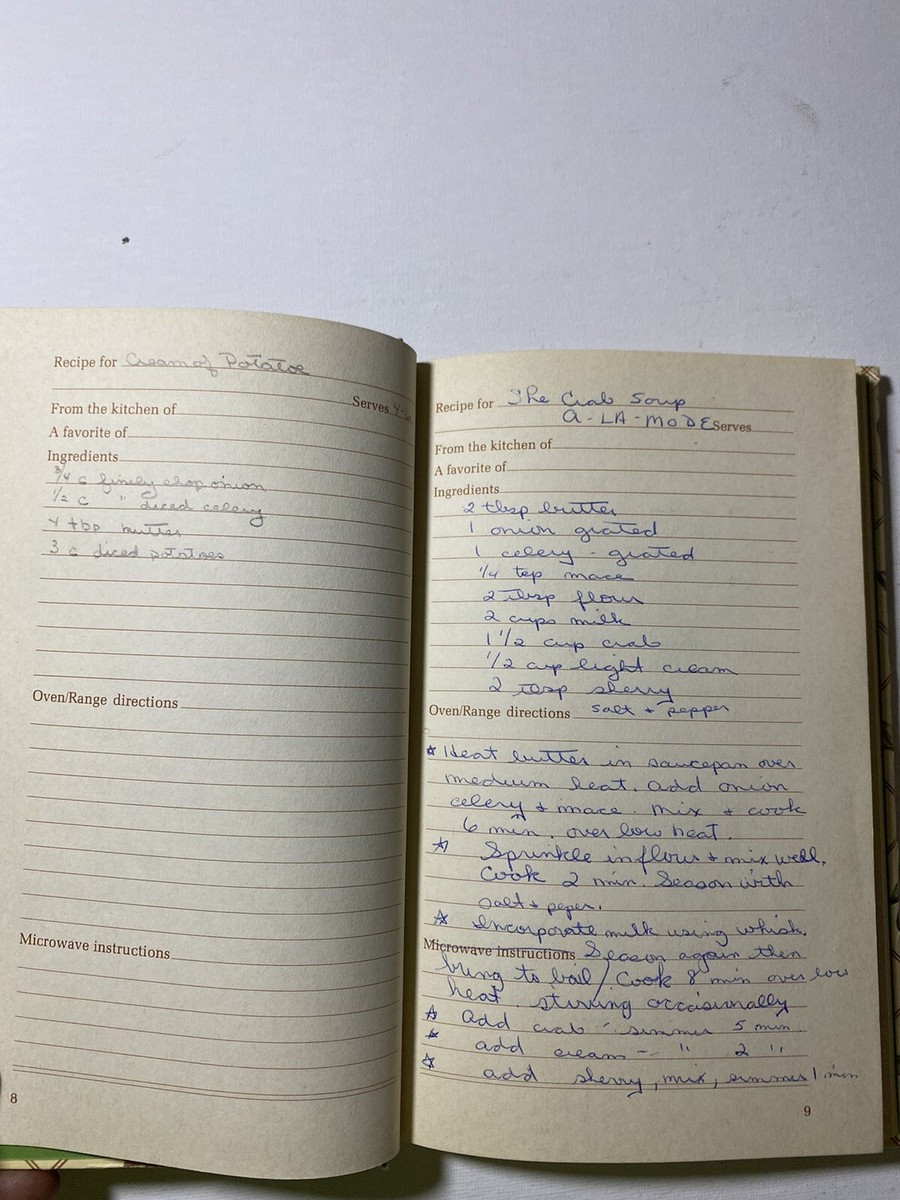 Recipe for Cream of Potatoe
Serves 4-6
From the kitchen of
A favorite of
Ingredients
3/4 c finely chop onion
1/2 c " diced celery
4 tbp butter
3 c diced potatoes
Oven/Range directions
Microwave instructions
8
Recipe for She Crab Soup
A-LA-MODE Serves
From the kitchen of
A favorite of
Ingredients
2 tbsp butter
1 onion grated
1 celery - grated
1/4 tsp mace
2 tbsp flour
2 cups milk
1 1/2 cup crab
1/2 cup light cream
2 tbsp sherry
Oven/Range directions salt + pepper
☆ Heat butter in saucepan over
medium heat. add onion
celery + mace. Mix + cook
6 min. over low heat.
☆ Sprinkle in flour + mix well.
Cook 2 min. Season with
salt + peper.
☆ Incorporate milk using whisk.
Microwave instructions Season again then
bring to boil / Cook 8 min over low
heat. stirring occasionally
☆ add crab - simmer 5 min
☆ add cream -- " 2 "
☆ add sherry, mix, simmer 1 min
9